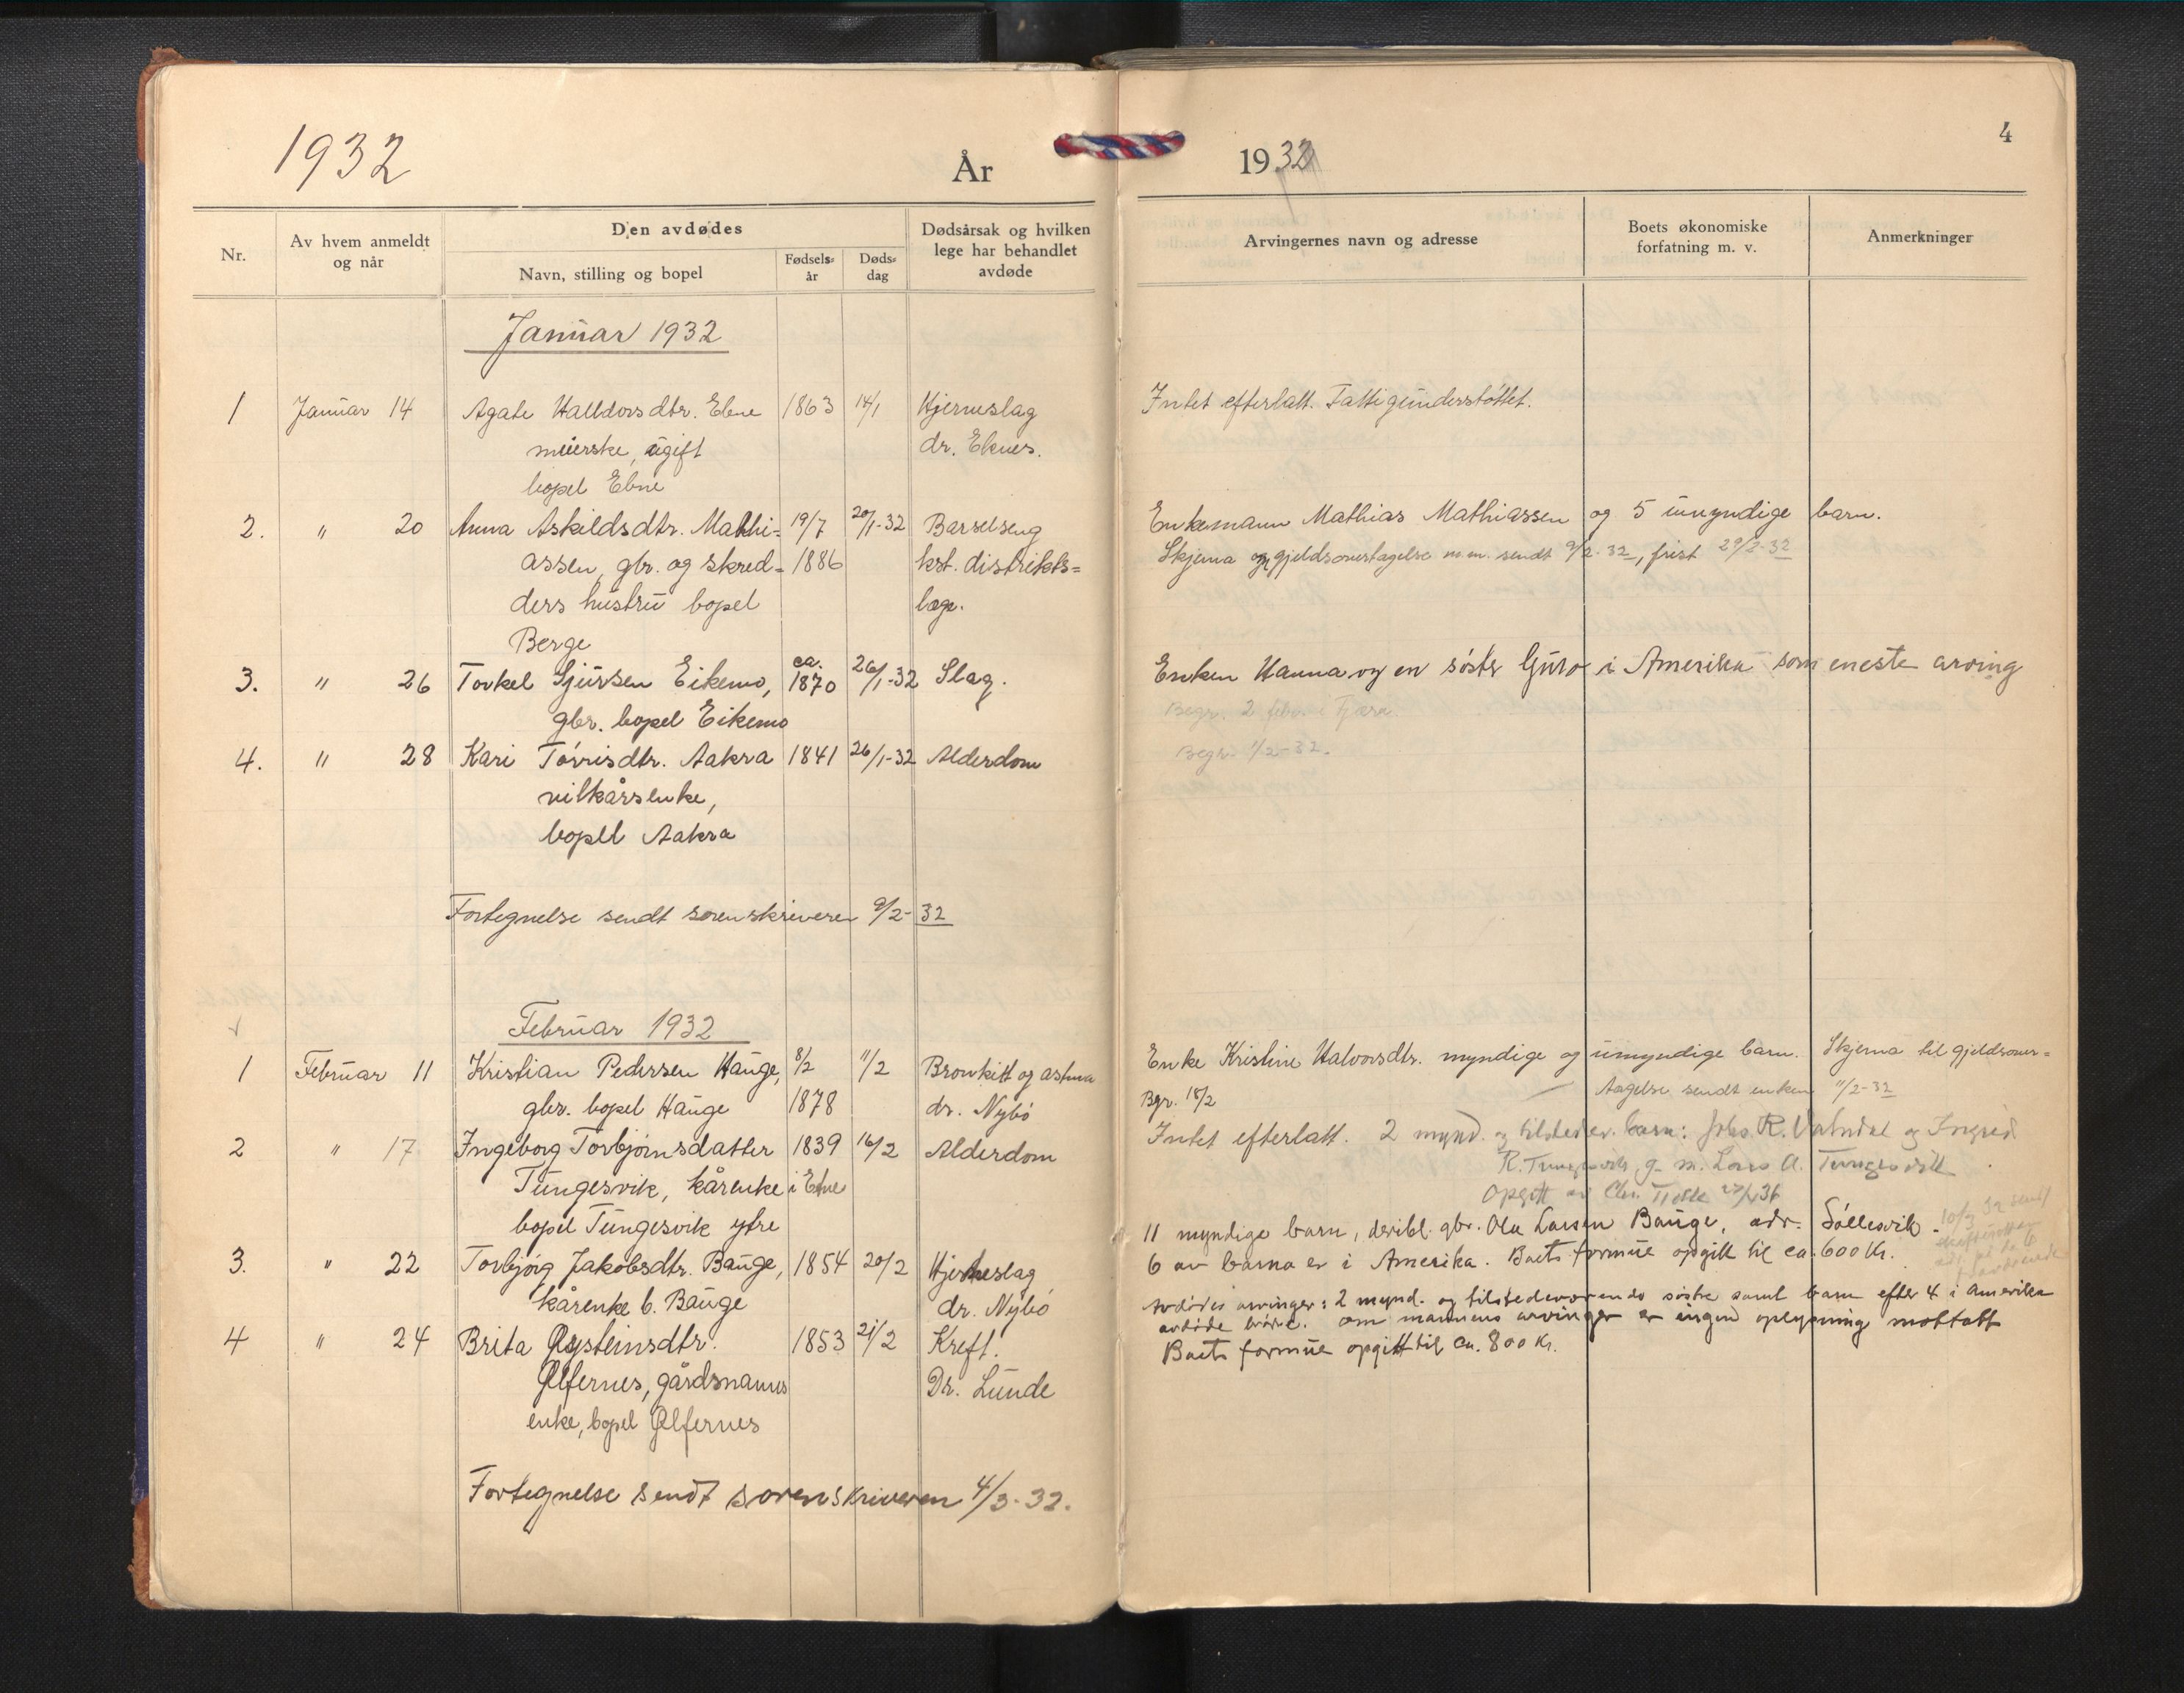 1932
År
Nr.
Av hvem anmeldt
og når
Den avdødes
Navn, stilling og bopel
Fødsels-
år
Døds-
dag
Dødsårsak og hvilken
lege har behandlet
avdøde
Januar 1932
1 Januar 14 Agate Halldorsdtr. Ebne 1863 14/1 Hjerneslag
meierske, ugift dr. Eknes.
bopel Ebne
2. " 20 Anna Askildsdtr. Mathi= 19/7 20/1-32 Barselseng
assen, gbr. og skred= 1886 kst. distrikts=
ders hustru bopel læge.
Berge
3. " 26 Torkel Sjursen Eikemo, ca. 1870 26/1-32 Slag.
gbr. bopel Eikemo
4. " 28 Kari Tørrisdtr. Aakra 1841 26/1-32 Alderdom
vilkårsenke,
bopel Aakra
Fortegnelse sendt sorenskriveren 9/2-32
Februar 1932
1 Februar 11 Kristian Pedersen Hauge, 8/2 11/2 Bronkitt og astma
gbr. bopel Hauge 1878 dr. Nybø
2 " 17 Ingeborg Torbjørnsdatter 1839 16/2 Alderdom
Tungesvik, kårenke i Etne
bopel Tungesvik ytre
3. " 22 Torbjørg Jakobsdtr. Bauge, 1854 20/2 Hjerneslag
kårenke b. Bauge dr. Nybø
4 " 24 Brita Øysteinsdtr. 1853 21/2 Kreft.
Ølfernes, gårdsmanns Dr. Lunde
enke, bopel Ølfernes
Fortegnelse sendt sorenskriveren 4/3-32.
4
1932
Arvingernes navn og adresse
Boets økonomiske
forfatning m. v.
Anmerkninger
Intet efterlatt. Fattigunderstøttet.
Enkemann Mathias Mathiassen og 5 umyndige barn.
Skjema og gjeldsovertagelse m.m. sendt 9/2-32, frist 29/2-32
Enken Hanna og en søster Guro i Amerika som eneste arving
Begr. 2 febr. i Fjæra
Begr. 1/2-32.
Enke Kristine Halvorsdtr. myndige og umyndige barn. Skjema til gjeldsover=
Bgr. 18/2 tagelse sendt enken 11/2-32
Intet efterlatt. 2 mynd. og tilstedev. barn: R. og Ingrid
R. g. m. Lars A. Tungesvik
Opgitt av Chr.
11 myndige barn, deribl. gbr. Ola Larsen Bauge, adr. Søllesvik.
6 av barna er i Amerika. Boets formue opgitt til ca. 600 Kr.
10/3 32 sendt
Avdødes arvinger: 2 mynd. og tilstedeværende søstre samt barn efter 4 i Amerika
avdøde brødre. Om mannens arvinger er ingen oplysning mottatt
Boets formue opgitt til ca. 800 Kr.